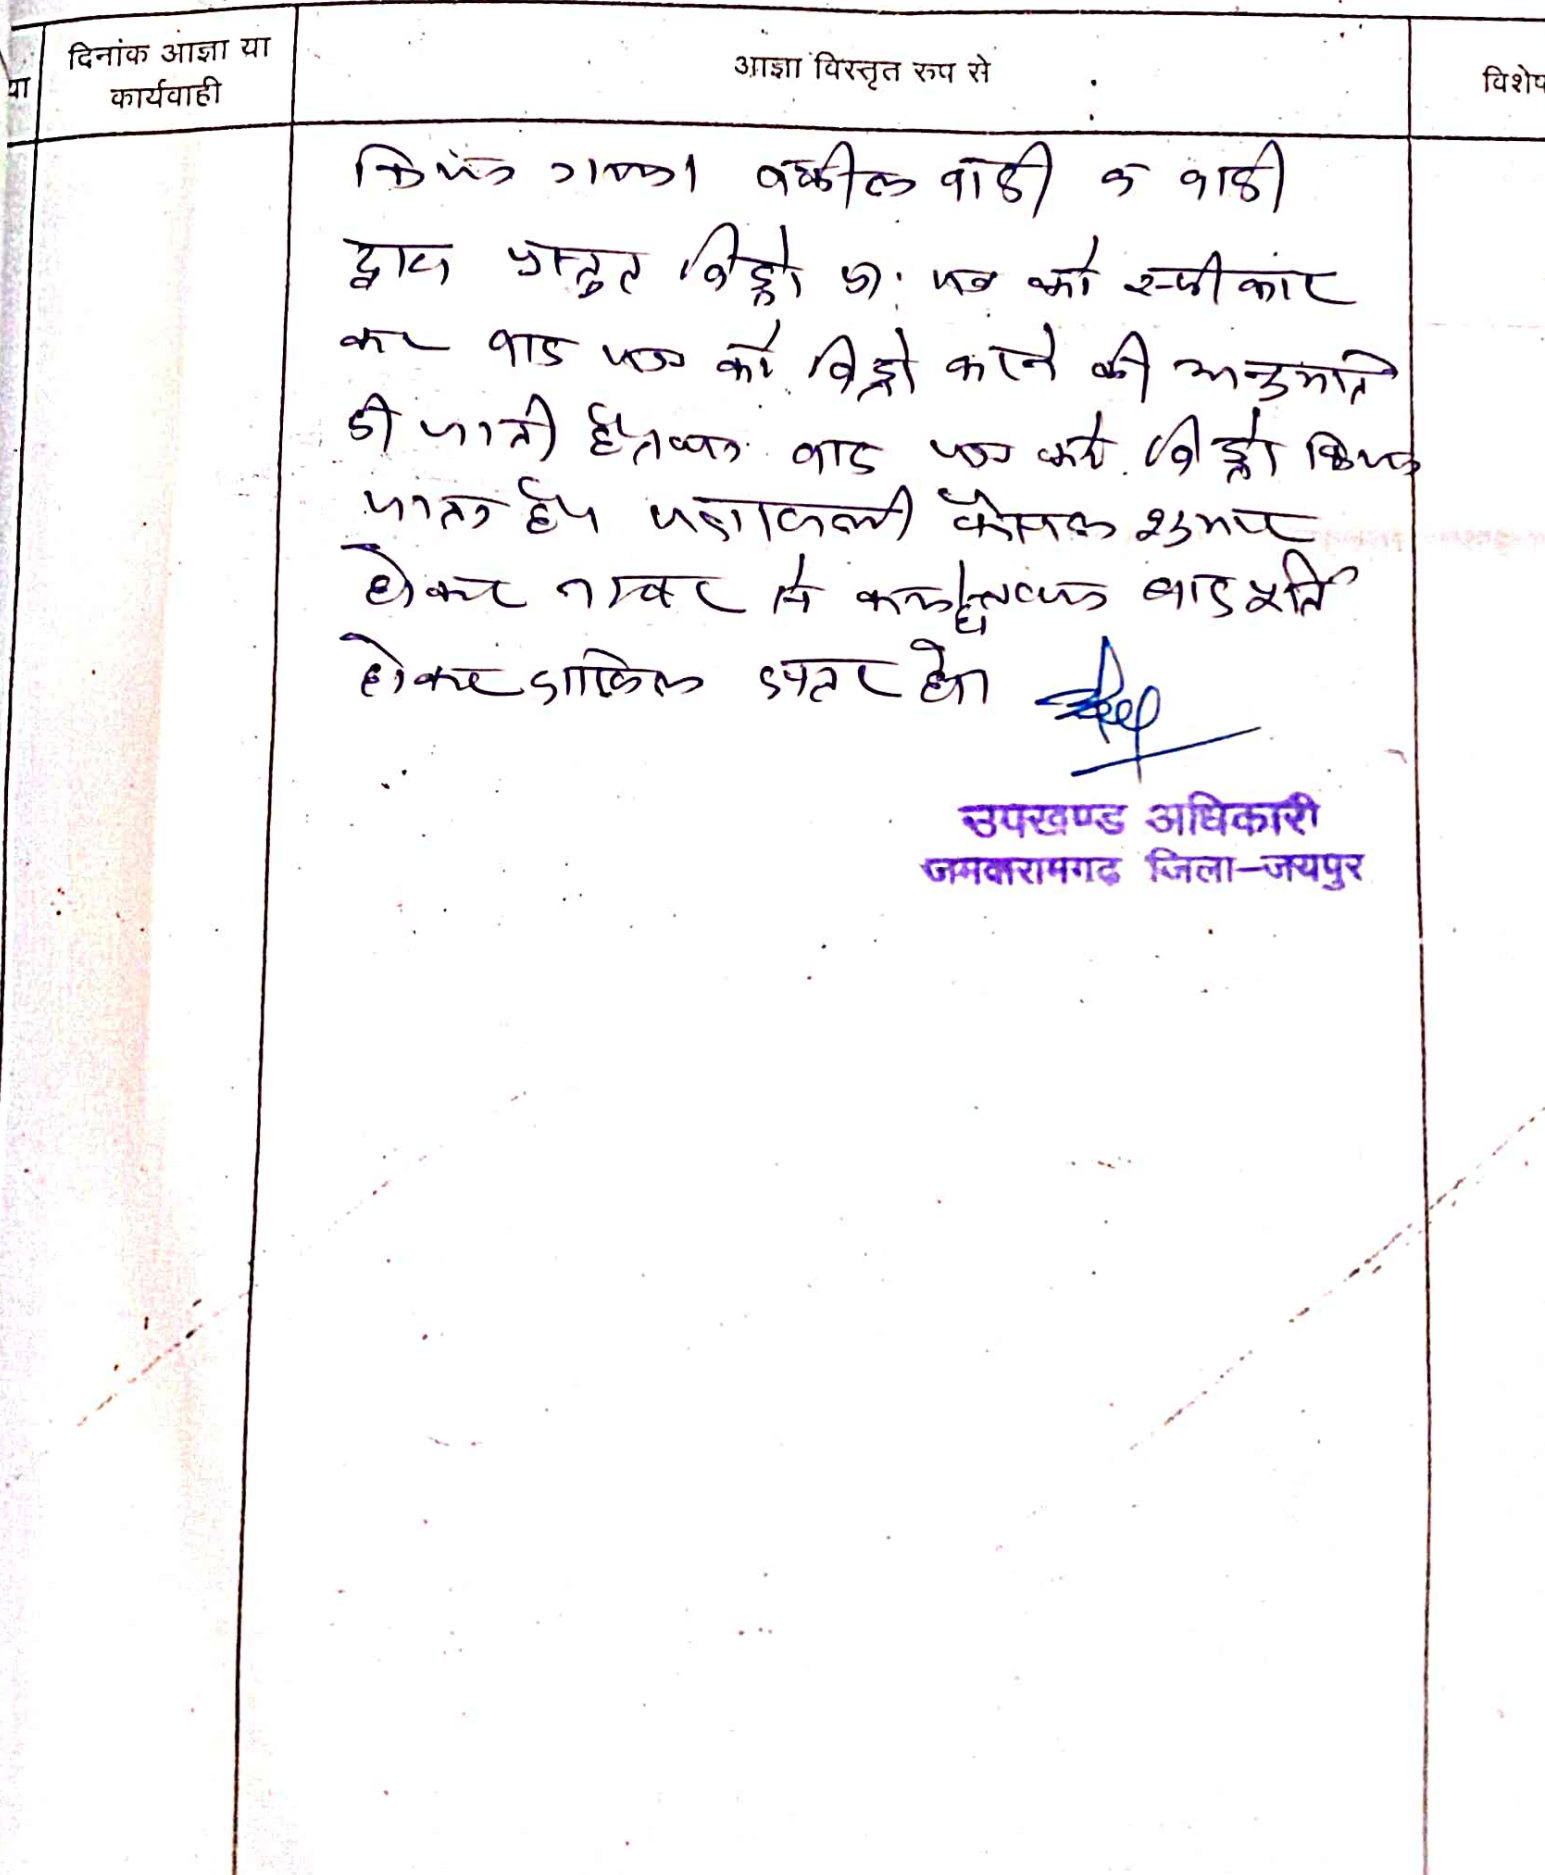 या
दिनांक आज्ञा या
कार्यवाही
आज्ञा विस्तृत रुप से
विशेष
किया गया। वकील वादी व वादी
द्वारा प्रस्तुत विड्रो प्रा. पत्र को स्वीकार
कर वाद पत्र को विड्रो करने की अनुमति
दी जाती है। वाद पत्र को विड्रो किया
जाता है। पत्रावली फैसल शुमार
होकर नम्बर से कम हो बाद पूर्ति
होकर दाखिल दफ्तर हो।
उपखण्ड अधिकारी
जमवारामगढ जिला-जयपुर